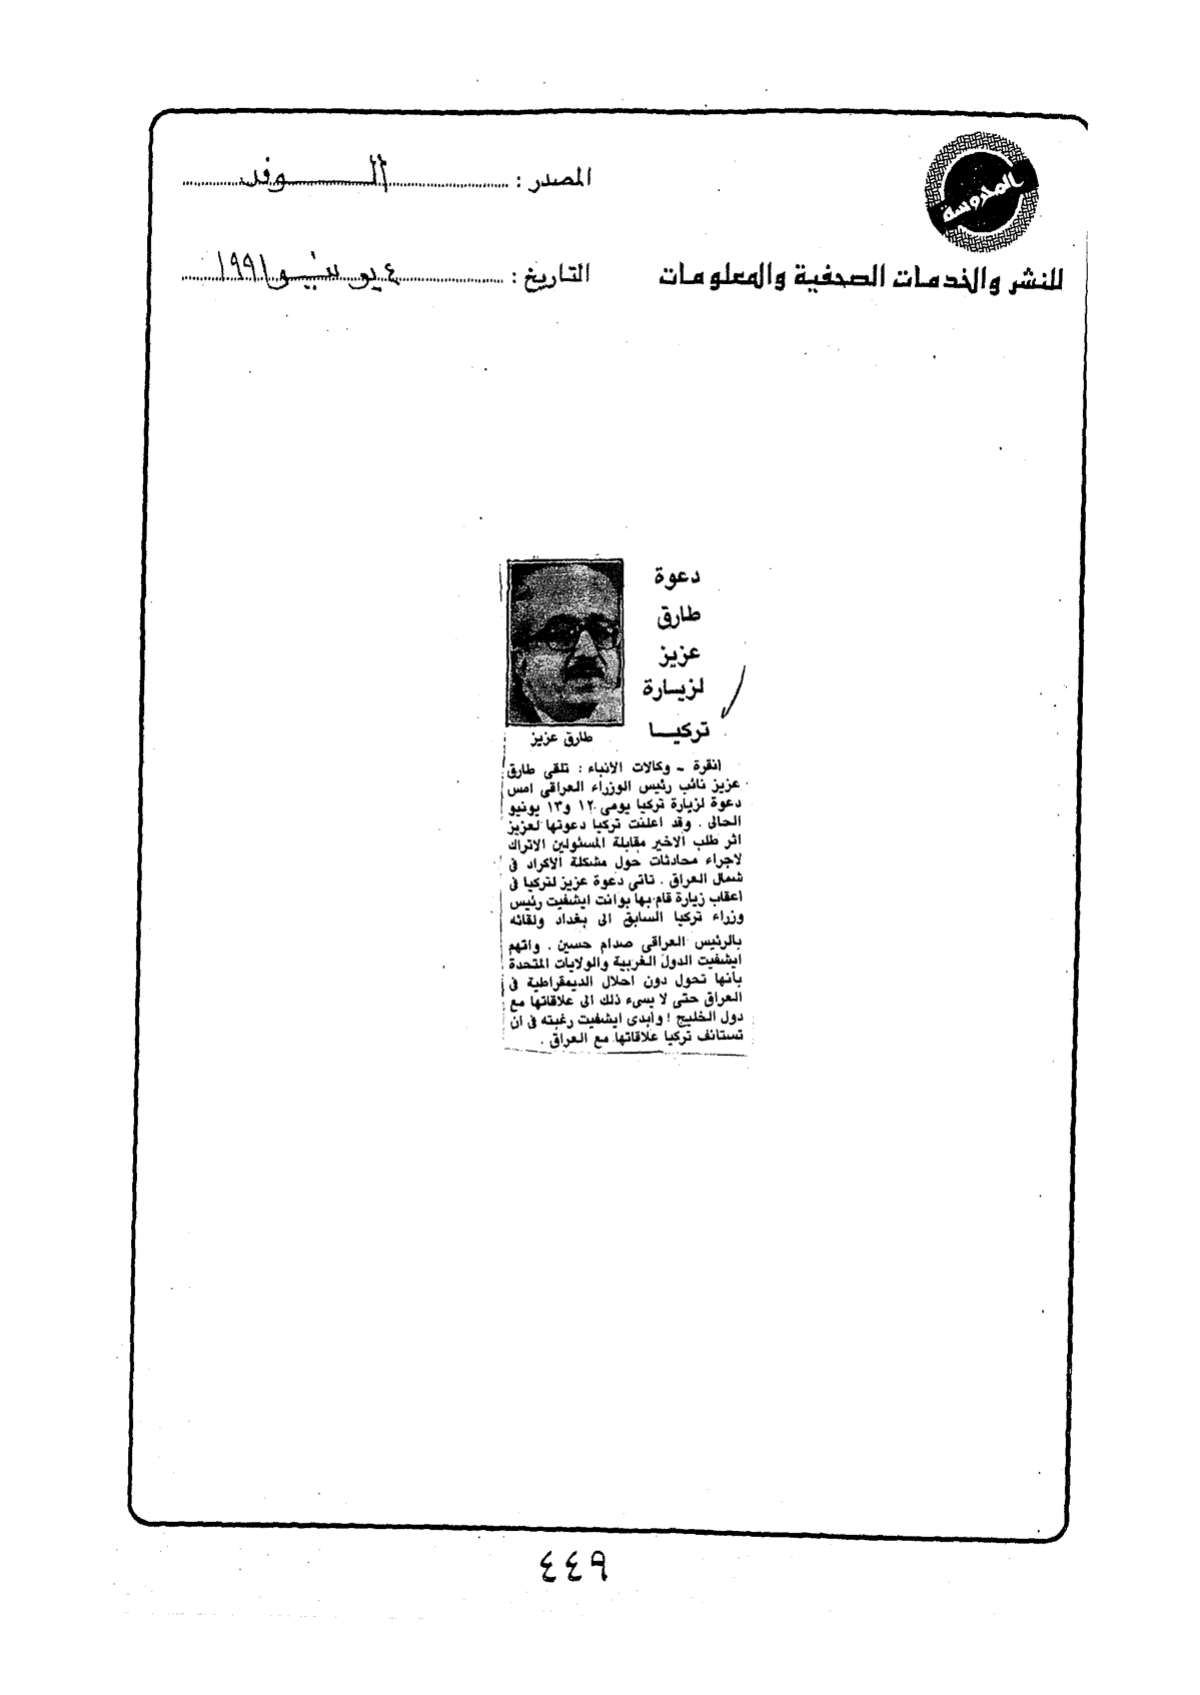 المحروسة
للنشر والخدمات الصحفية والمعلومات
المصدر : الوفد
التاريخ : ٤ يونيو ١٩٩١
دعوة
طارق
عزيز
لزيارة
تركيا
طارق عزيز
انقرة ـ وكالات الانباء : تلقى طارق
عزيز نائب رئيس الوزراء العراقى امس
دعوة لزيارة تركيا يومى ١٢ و١٣ يونيو
الحالى . وقد اعلنت تركيا دعوتها لعزيز
اثر طلب الاخير مقابلة المسئولين الاتراك
لاجراء محادثات حول مشكلة الاكراد فى
شمال العراق . تاتى دعوة عزيز لتركيا فى
اعقاب زيارة قام بها بوانت ايشفيت رئيس
وزراء تركيا السابق الى بغداد ولقائه
بالرئيس العراقى صدام حسين . واتهم
ايشفيت الدول الغربية والولايات المتحدة
بأنها تحول دون احلال الديمقراطية فى
العراق حتى لا يسىء ذلك الى علاقاتها مع
دول الخليج ! وأبدى ايشفيت رغبته فى ان
تستانف تركيا علاقاتها مع العراق .
٤٤٩